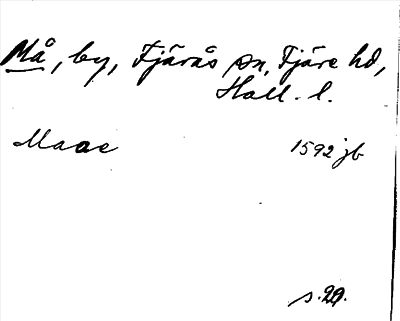 Må, by, Fjärås sn, Fjäre hd,
Hall. l.
Maae 1592 jb
s. 29.